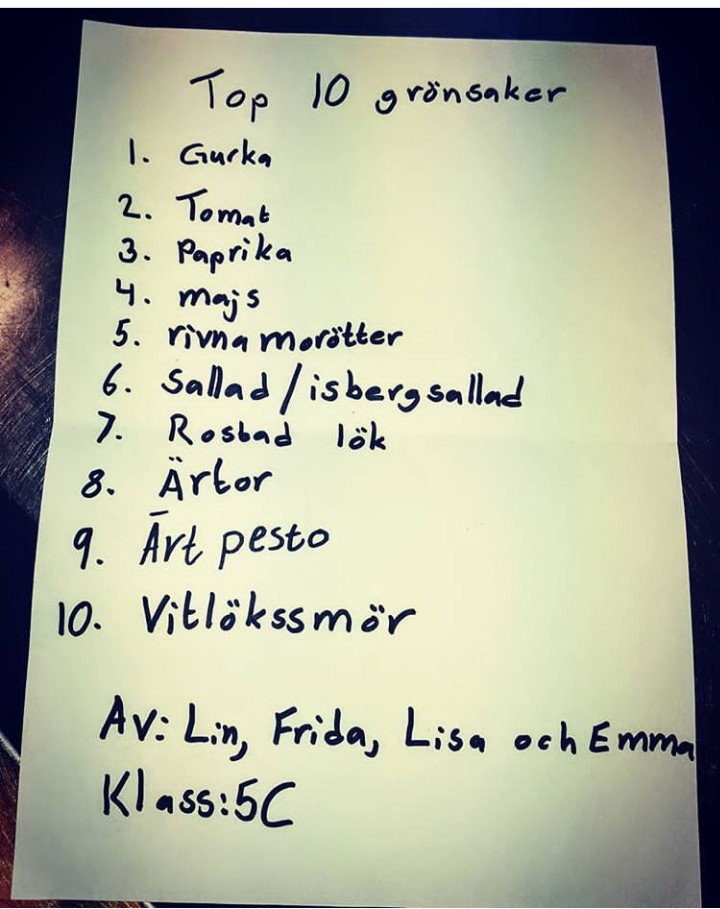 Top 10 grönsaker
1. Gurka
2. Tomat
3. Paprika
4. majs
5. rivna morötter
6. Sallad/isbergsallad
7. Rosbad lök
8. Ärtor
9. Ärt pesto
10. Vitlökssmör
Av: Lin, Frida, Lisa och Emma
Klass:5C